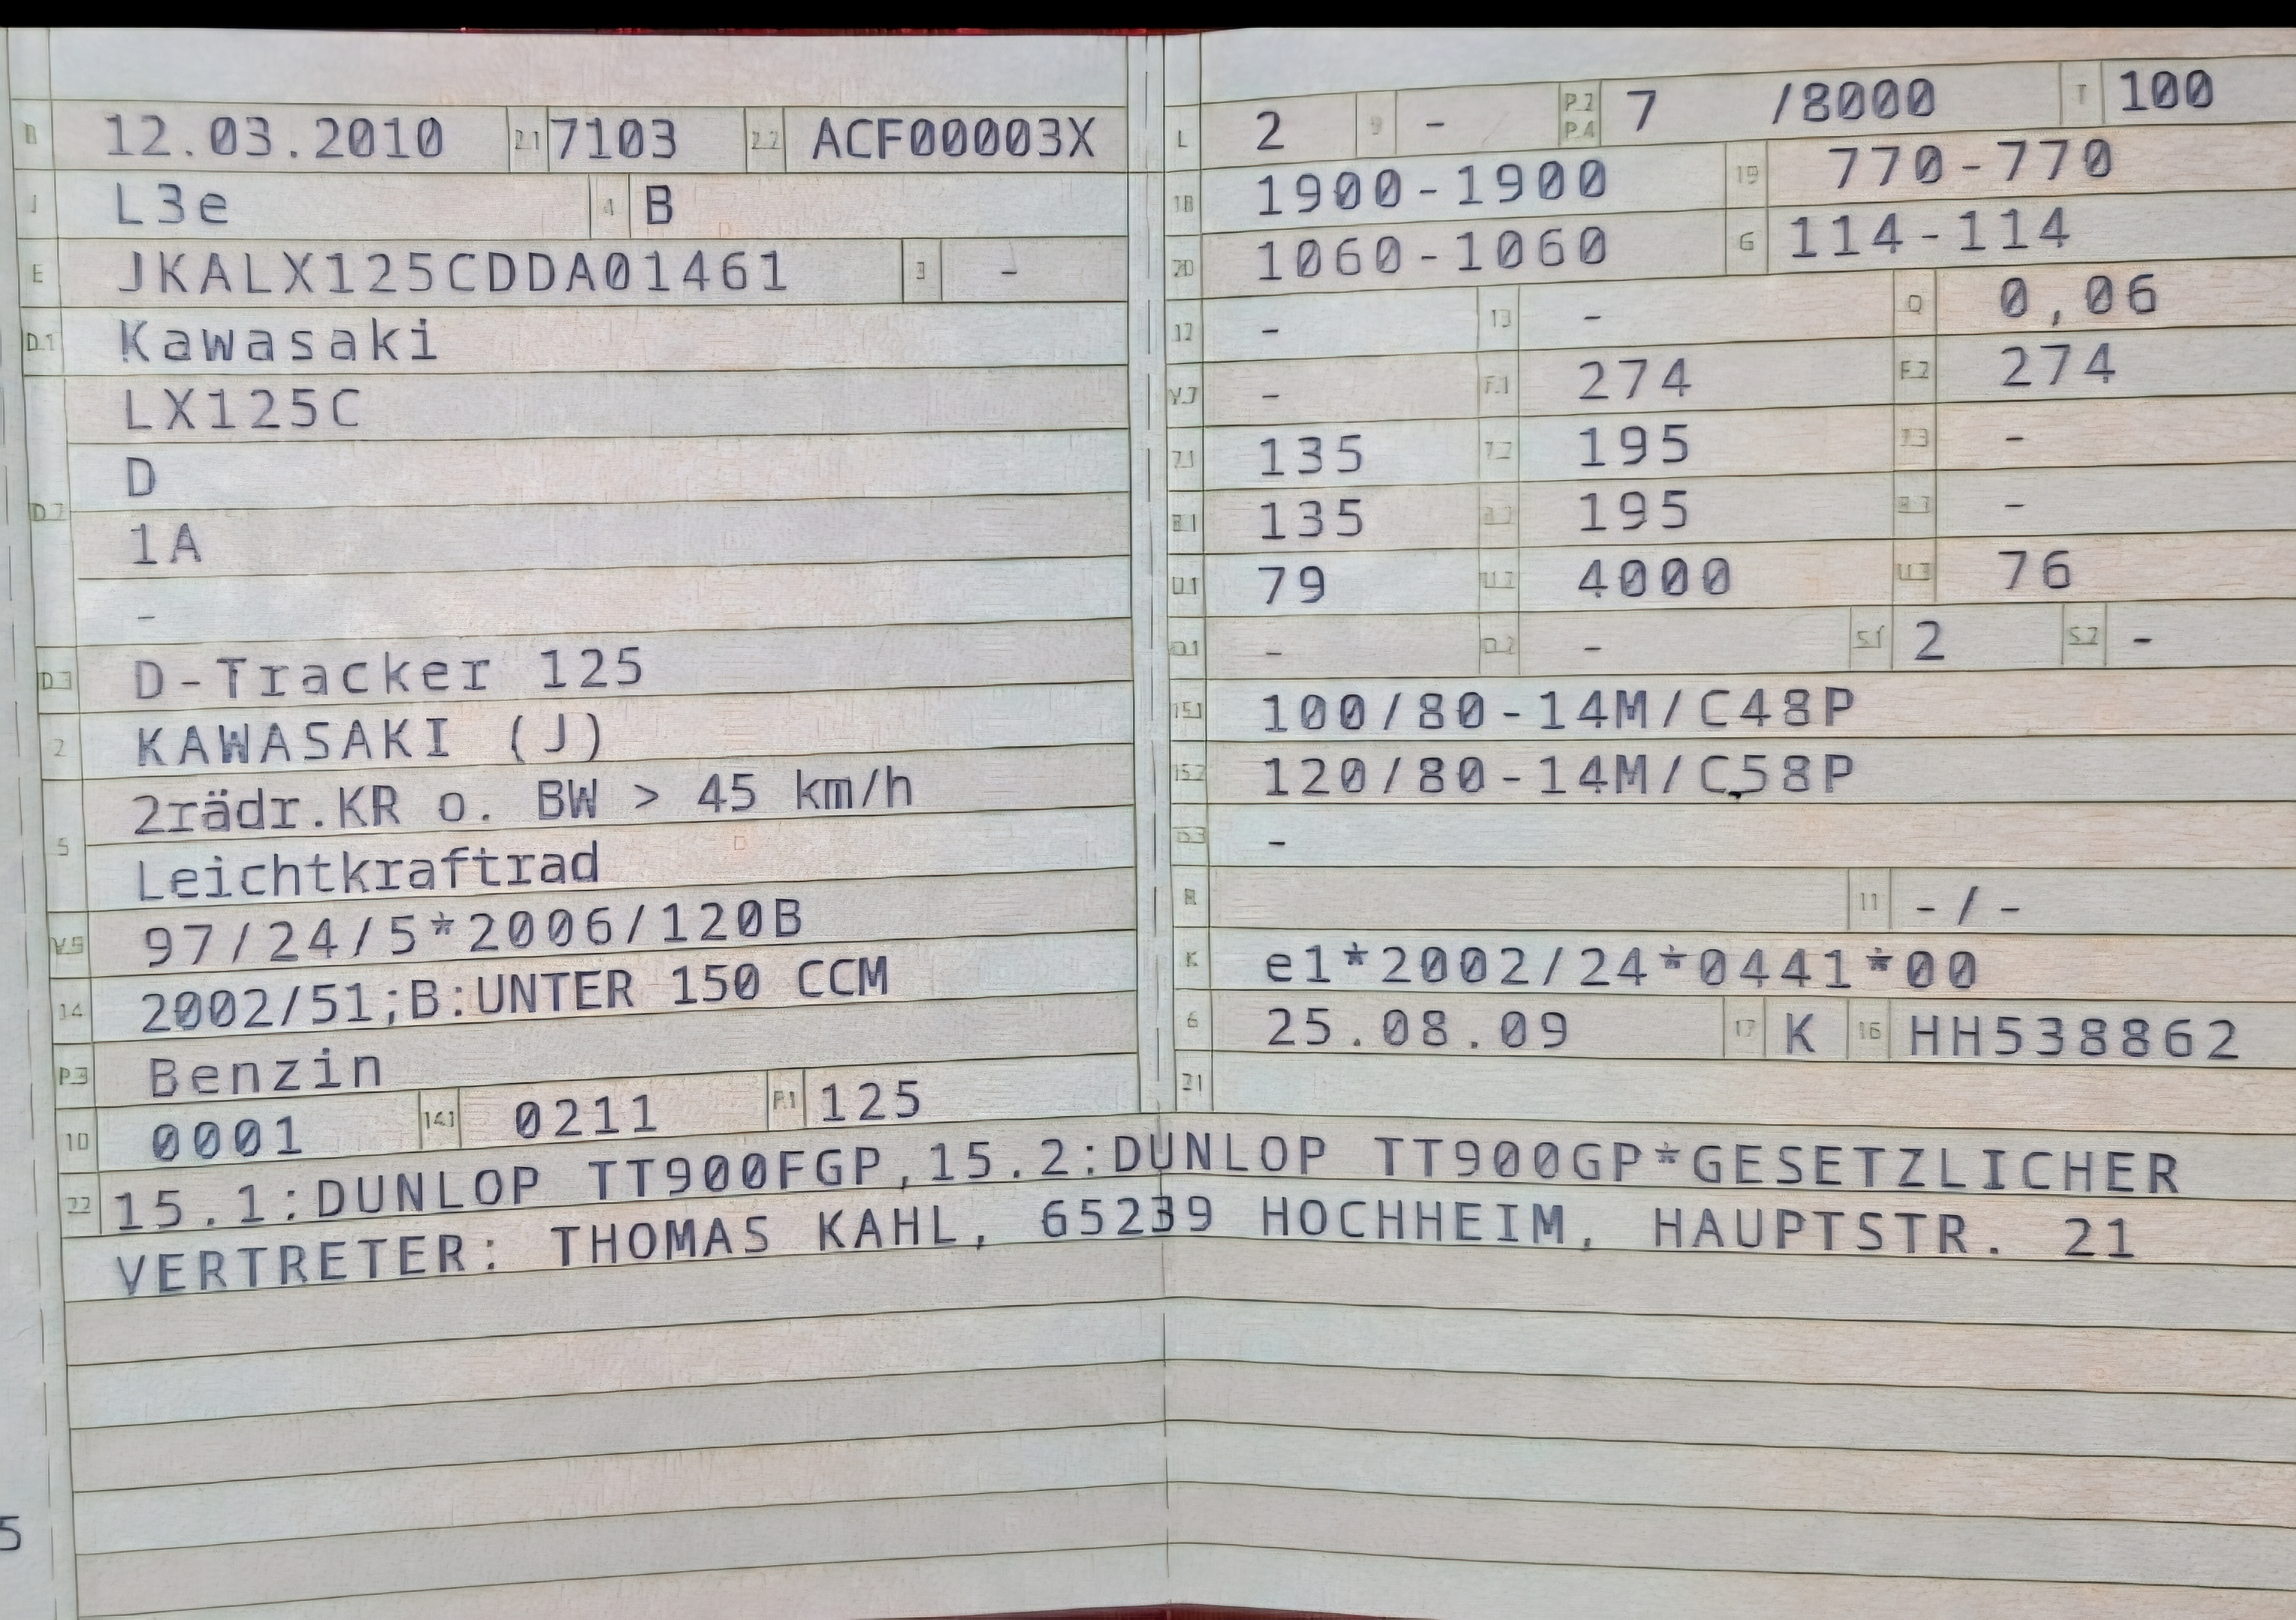 B 12.03.2010 2.1 7103 2.2 ACF00003X
J L3e 4 B
E JKALX125CDDA01461 3 -
D.1 Kawasaki
LX125C
D
D.2
1A
-
D.3 D-Tracker 125
2 KAWASAKI (J)
2rädr.KR o. BW > 45 km/h
5
Leichtkraftrad
V.9 97/24/5*2006/120B
14 2002/51;B:UNTER 150 CCM
P.3 Benzin
10 0001 14.1 0211 P.1 125
L 2 9 - P.2 P.4 7 /8000 T 100
18 1900-1900 19 770-770
20 1060-1060 G 114-114
12 - 13 - Q 0,06
V.7 - F.1 274 F.2 274
7.1 135 7.2 195 7.3 -
8.1 135 8.2 195 8.3 -
U.1 79 U.2 4000 U.3 76
O.1 - O.2 - S.1 2 S.2 -
15.1 100/80-14M/C48P
15.2 120/80-14M/C58P
15.3 -
R 11 -/-
K e1*2002/24*0441*00
6 25.08.09 17 K 16 HH538862
21
22 15.1:DUNLOP TT900FGP,15.2:DUNLOP TT900GP*GESETZLICHER
VERTRETER: THOMAS KAHL, 65239 HOCHHEIM, HAUPTSTR. 21
5